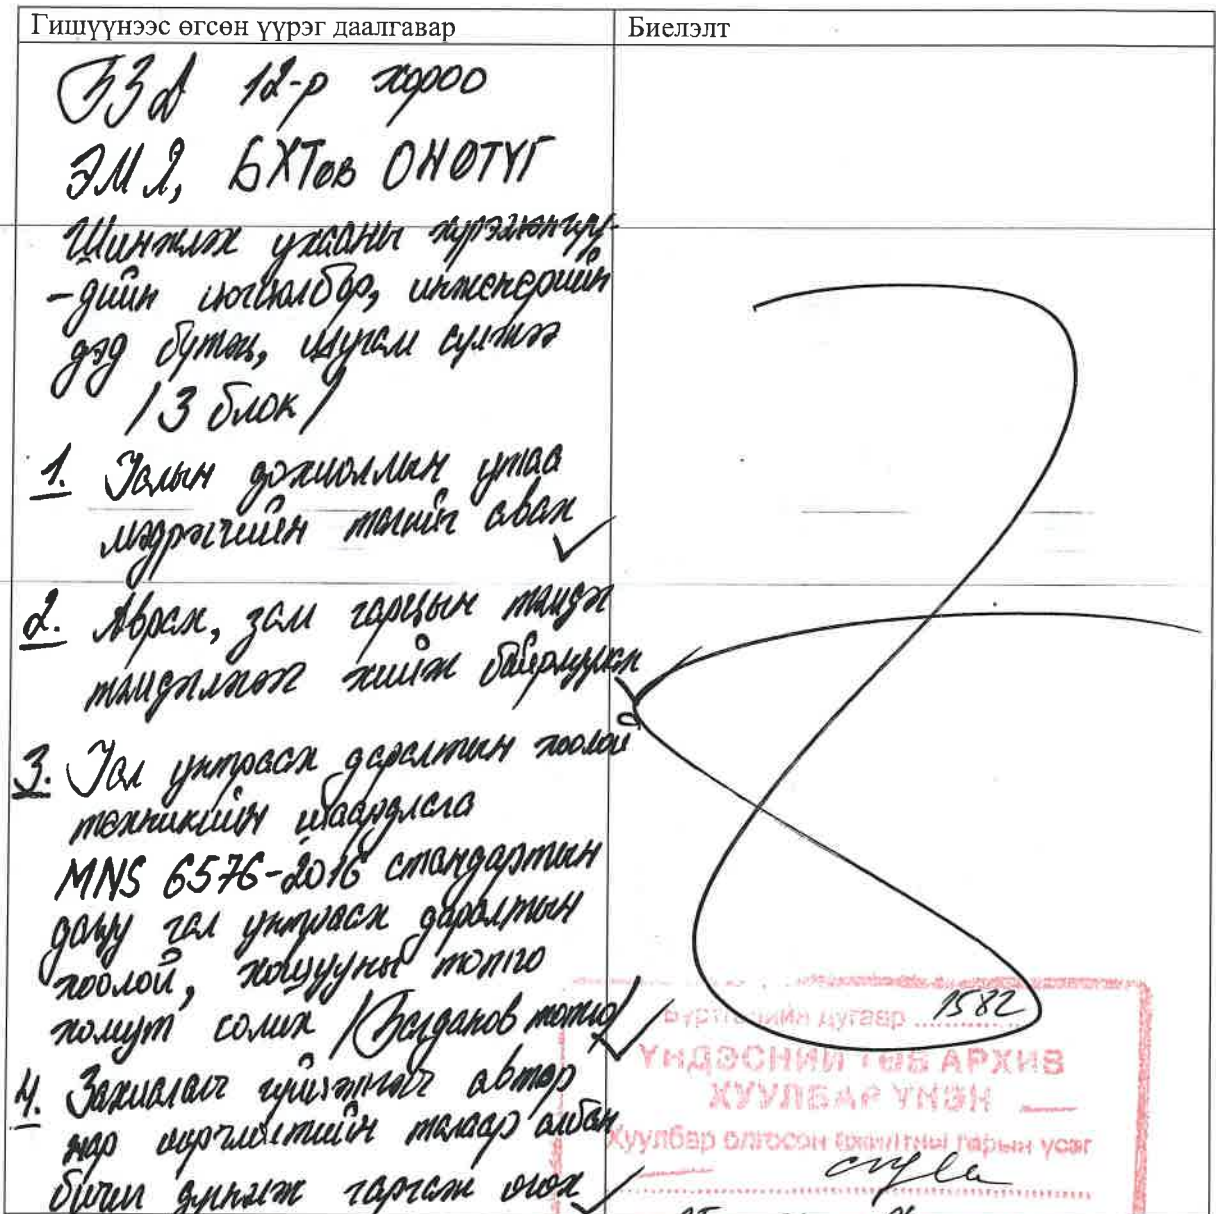 Гишүүнээс өгсөн үүрэг даалгавар
Биелэлт
БЗД 12-р хороо
ЭМЯ, БХТөв ОНӨТҮГ
Шинжлэх ухааны хүрээлэнгүү-
-дийн цогцолбор, инженерийн
дэд бүтэц, шугам сүлжээ
/3 блок/
1. Галын дохиоллын утаа
мэдрэгчийн тагийг авах
2. Аврах, зам гарцын тэмдэг
тэмдэглэгээг хийж байрлуулах
3. Гал унтраах даралтын хоолой
техникийн шаардлага
MNS 6576-2016 стандартын
дагуу гал унтраах даралтын
хоолой, хошууны толгой
хомут солих /Богданов толгой/
4. Захиалагч гүйцэтгэгч автор
нар өөрчлөлтийн талаар албан
бичиг дүгнэлт гаргаж өгөх
Бүртгэлийн дугаар 1582
ҮНДЭСНИЙ ТӨВ АРХИВ
ХУУЛБАР ҮНЭН
Хуулбар олгосон архивтны гарын үсэг